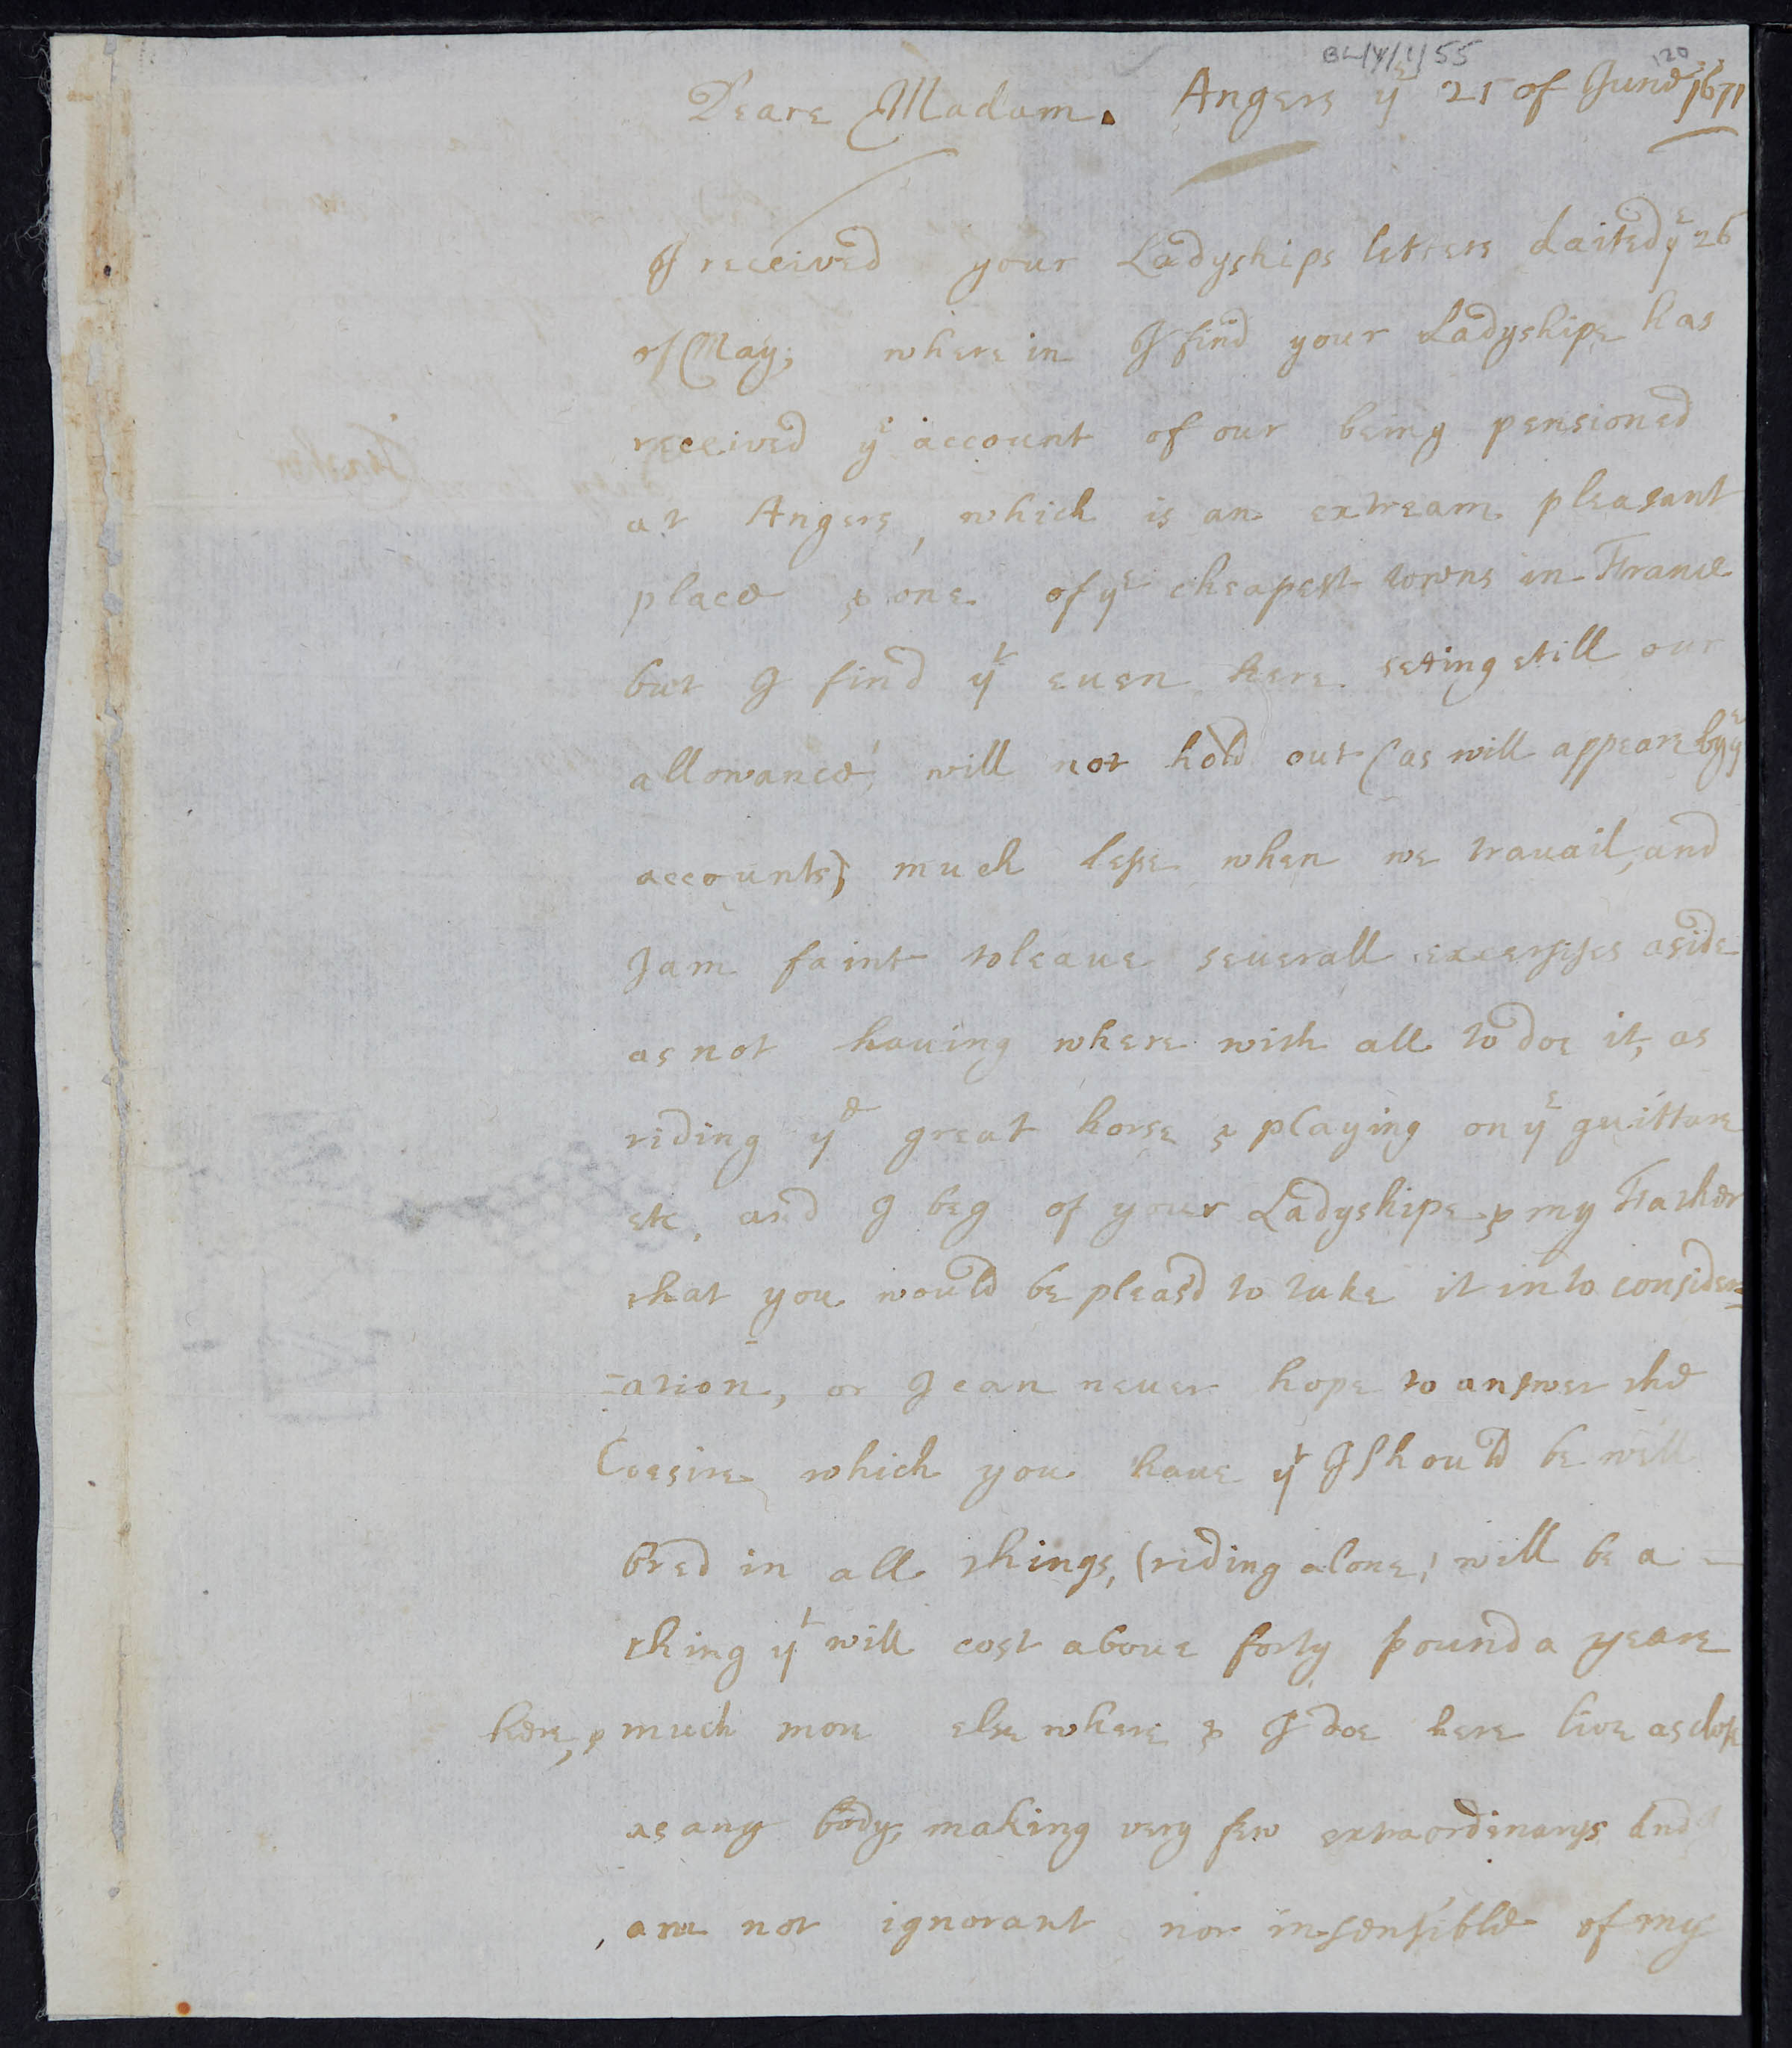 BL/Y/1/55
120
Deare Madam. Angers ye 25 of June 1671
I received your Ladyships letters daited ye 26
of May; where in I find your Ladyshipe has
received ye account of our being pensioned
at Angers, which is an extream pleasant
place & one of ye cheapest towns in France
but I find yt euen here seting still our
allowance, will not hold out (as will appeare by ye
accounts) much lesse when we trauail, and
I am faint to leaue seuerall exersises aside
as not hauing where with all to doe it, as
riding ye great horse & playing on ye guittare
etc, and I beg of your Ladyshipe & my Father
that you would be pleasd to take it into consider=
=ation, or I can neuer hope to answer the
Desire which you haue yt I should be well
bred in all things, (riding alone) will be a
thing yt will cost aboue forty pound a yeare
here, & much more else where & I doe here live as close
as any body, making very few extraordinarys And
am not ignorant nor insensible of my